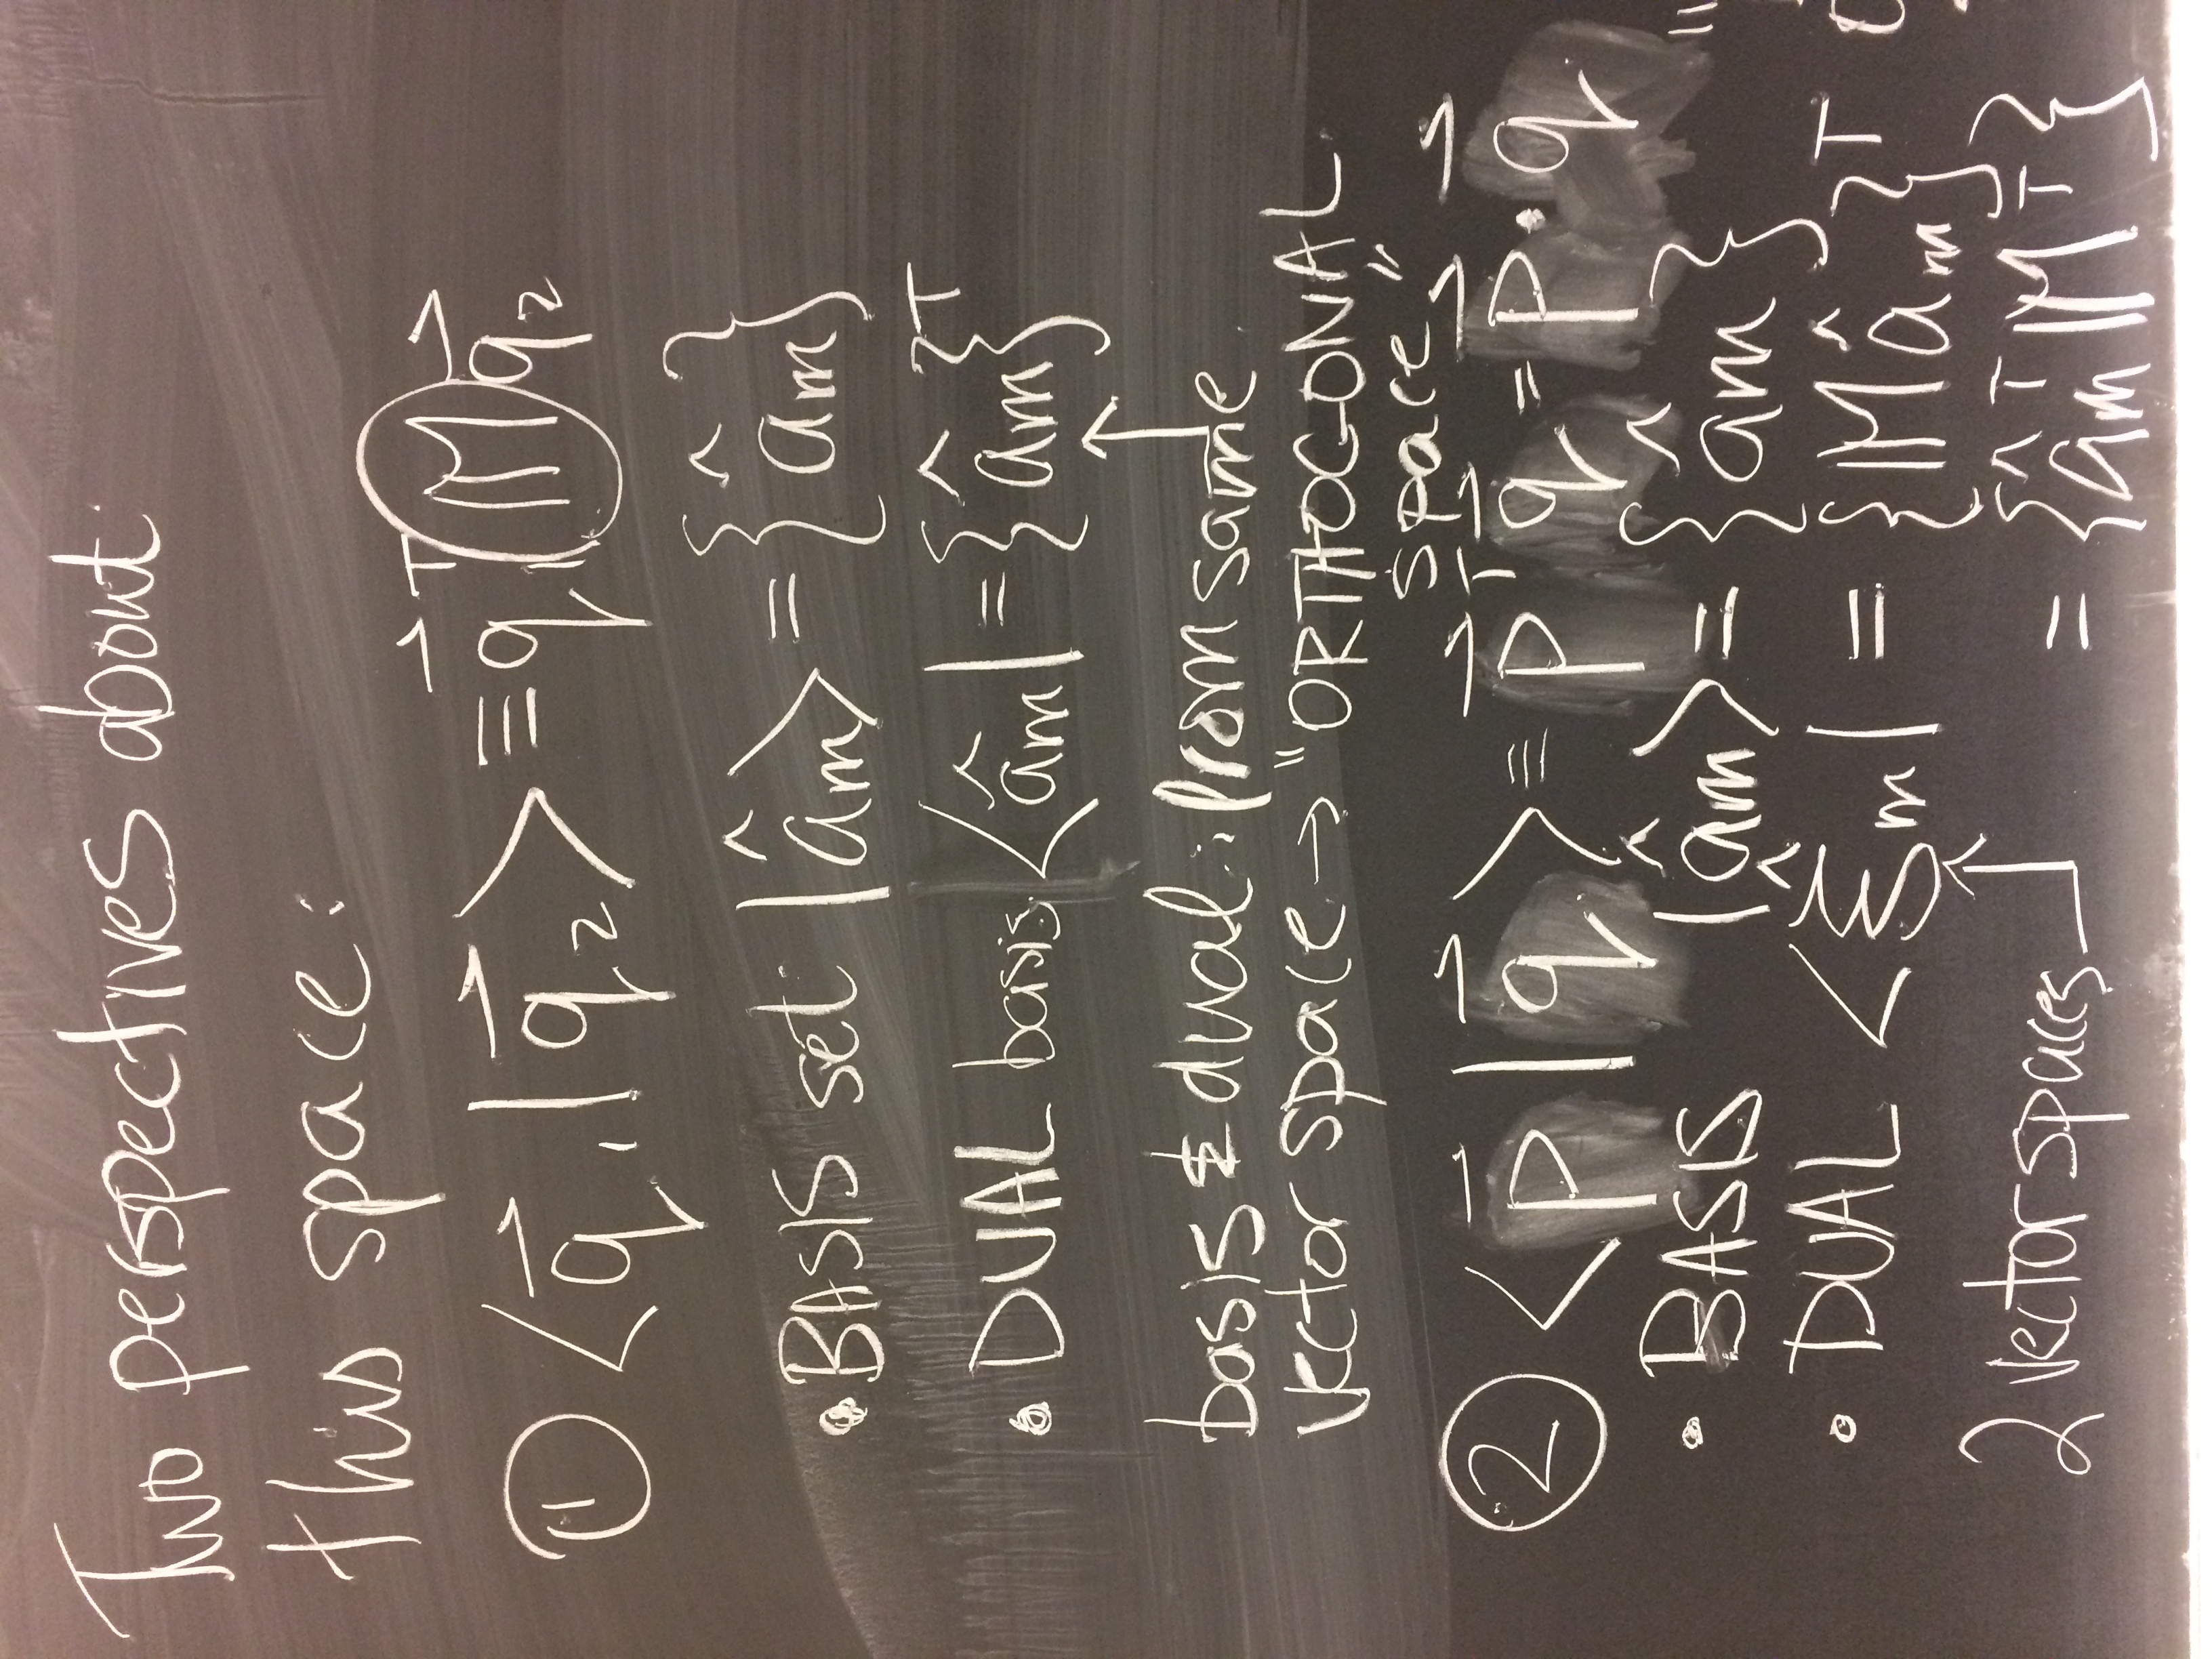 Two perspectives about
this space:
① ⟨q⃗₁|q⃗₂⟩ ≡ q⃗₁ᵀ 𝕄 q⃗₂
• BASIS set |âm⟩ = {âm}
• DUAL basis ⟨âm| = {âm}ᵀ
basis & dual: from same
vector space → "ORTHOGONAL
space"
② ⟨p⃗|q⃗⟩ ≡ p⃗ᵀq⃗ = p⃗·q⃗ "
• BASIS |âm⟩ = {âm}
• DUAL ⟨ξ̂m| = {𝕄âm}ᵀ
2 vector spaces = {âmᵀ𝕄ᵀ}